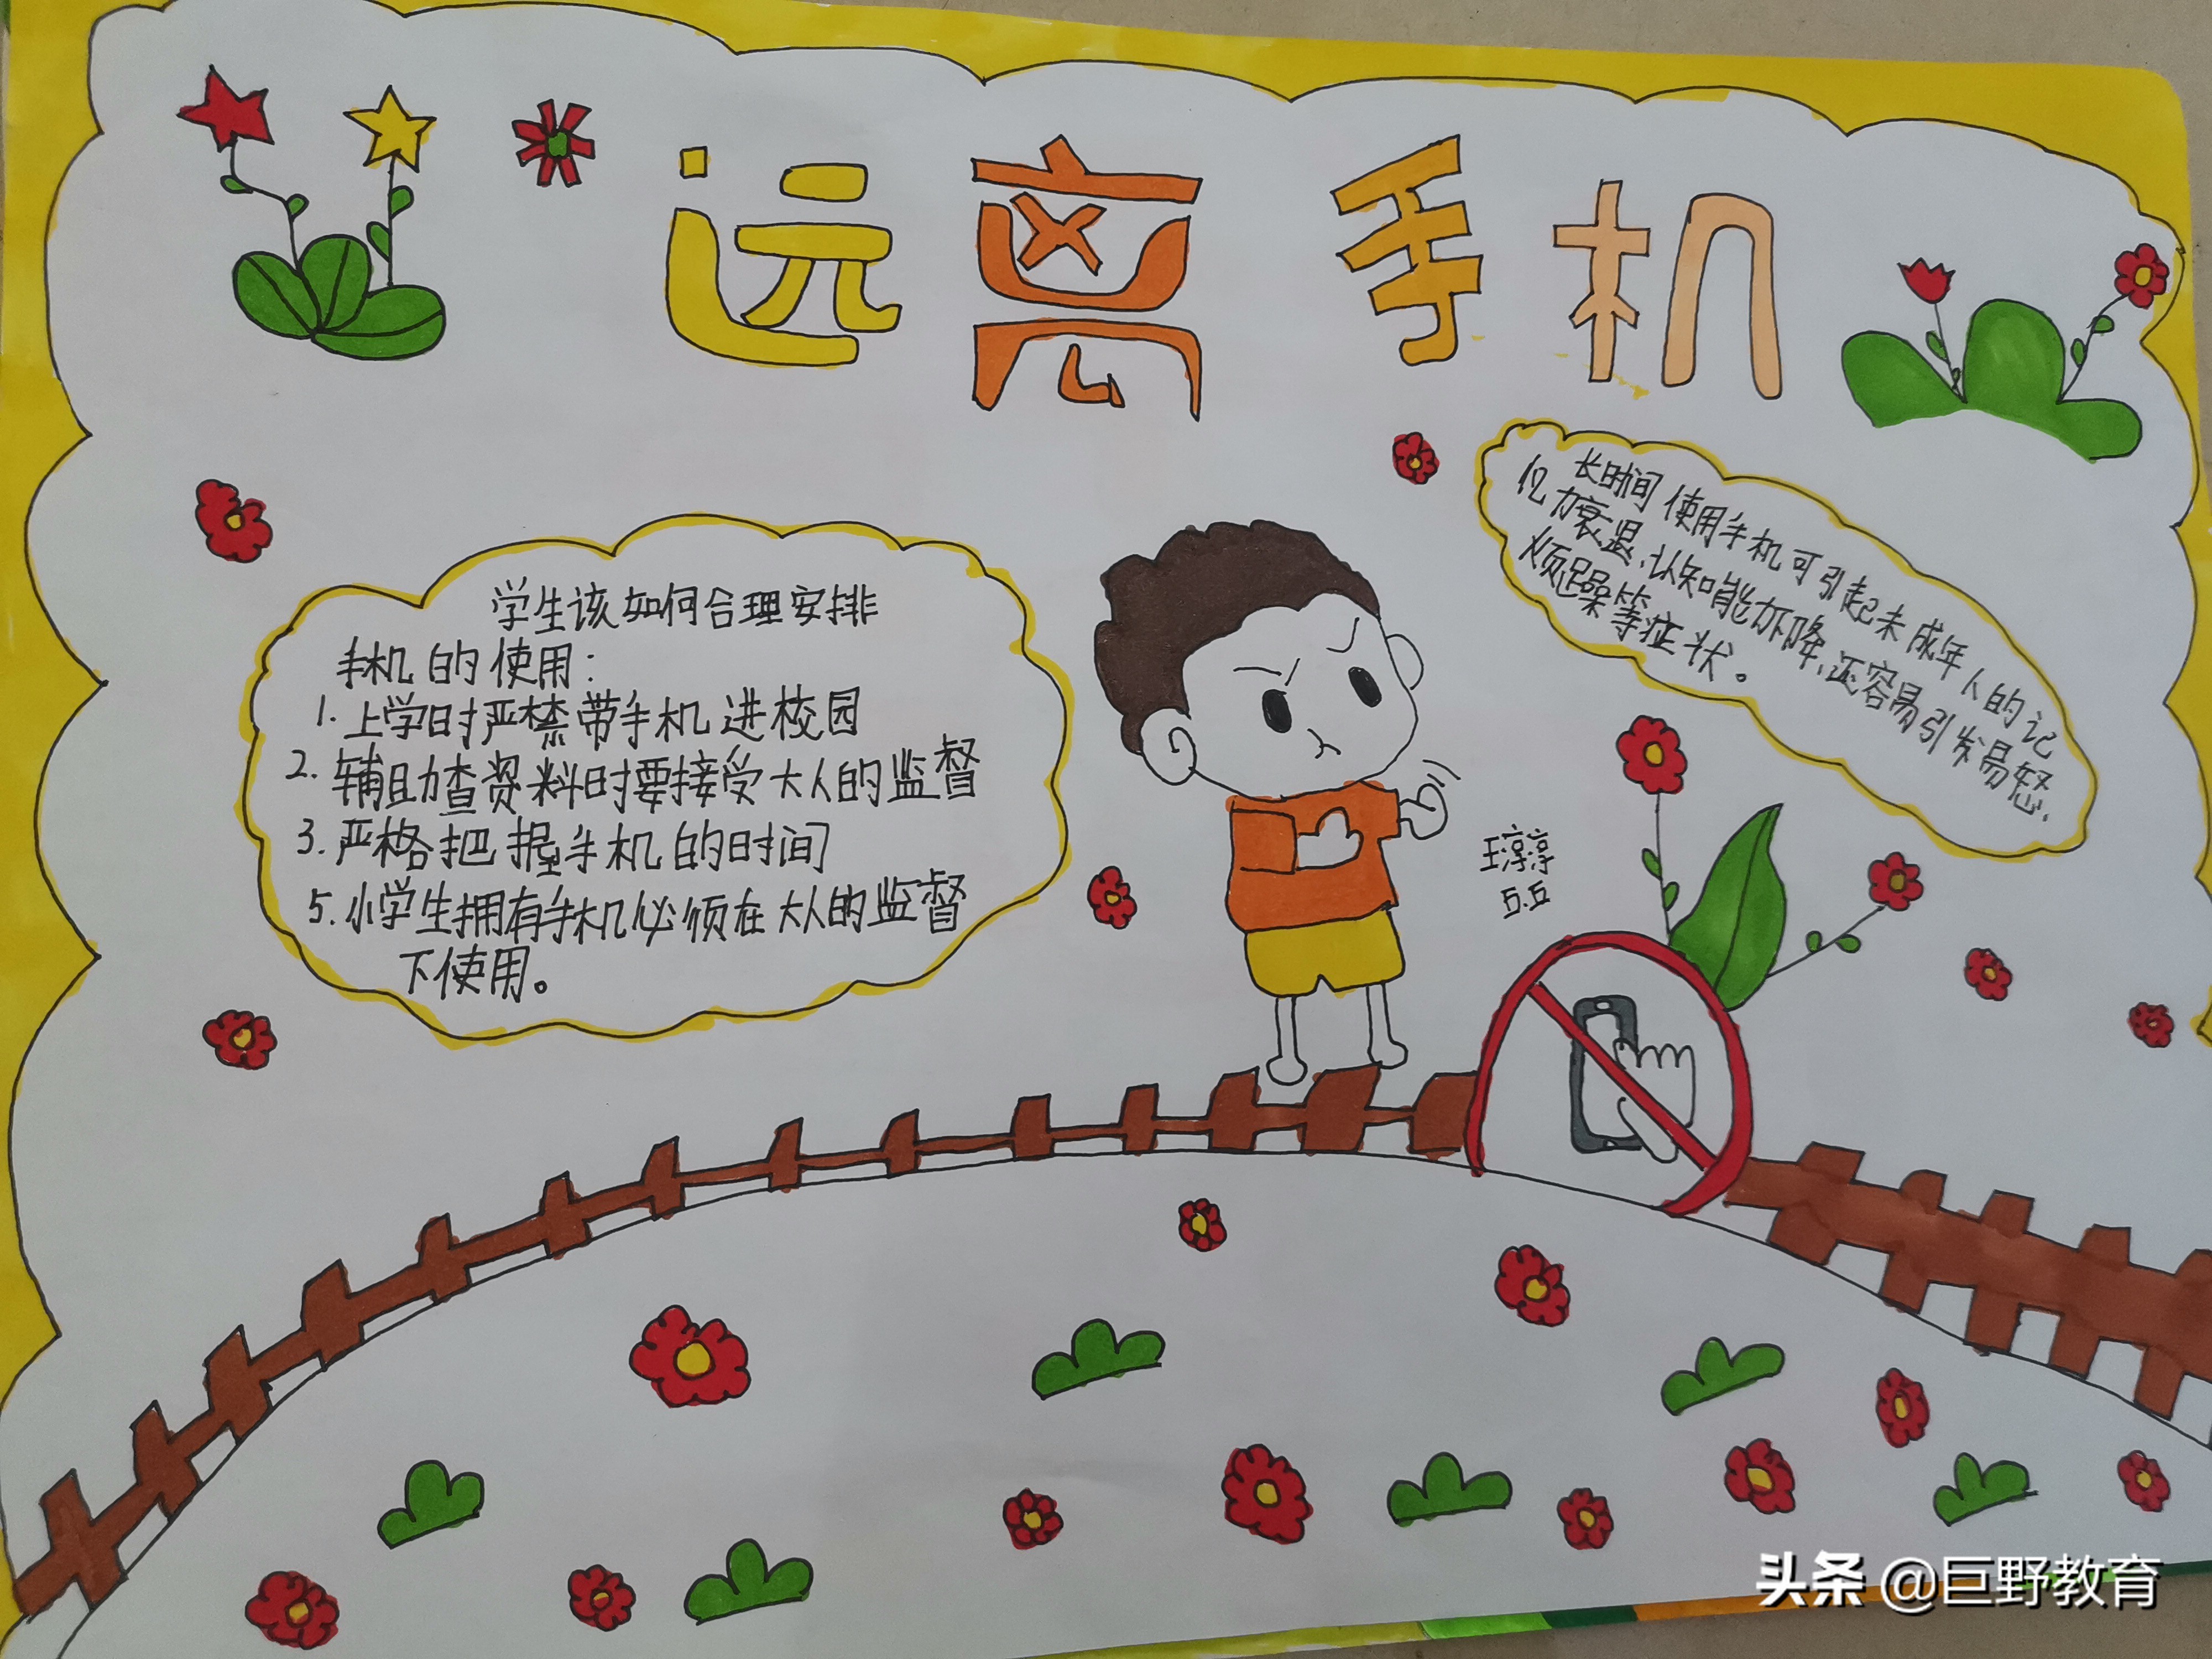 远离手机
长时间使用手机可引起未成年人的记
忆力衰退、认知能力下降、还容易引发易怒、
烦躁等症状。
学生该如何合理安排
手机的使用：
1. 上学时严禁带手机进校园
2. 辅助查资料时要接受大人的监督
3. 严格把握手机的时间
5. 小学生拥有手机必须在大人的监督
下使用。
王淳淳
5.5
头条 @巨野教育